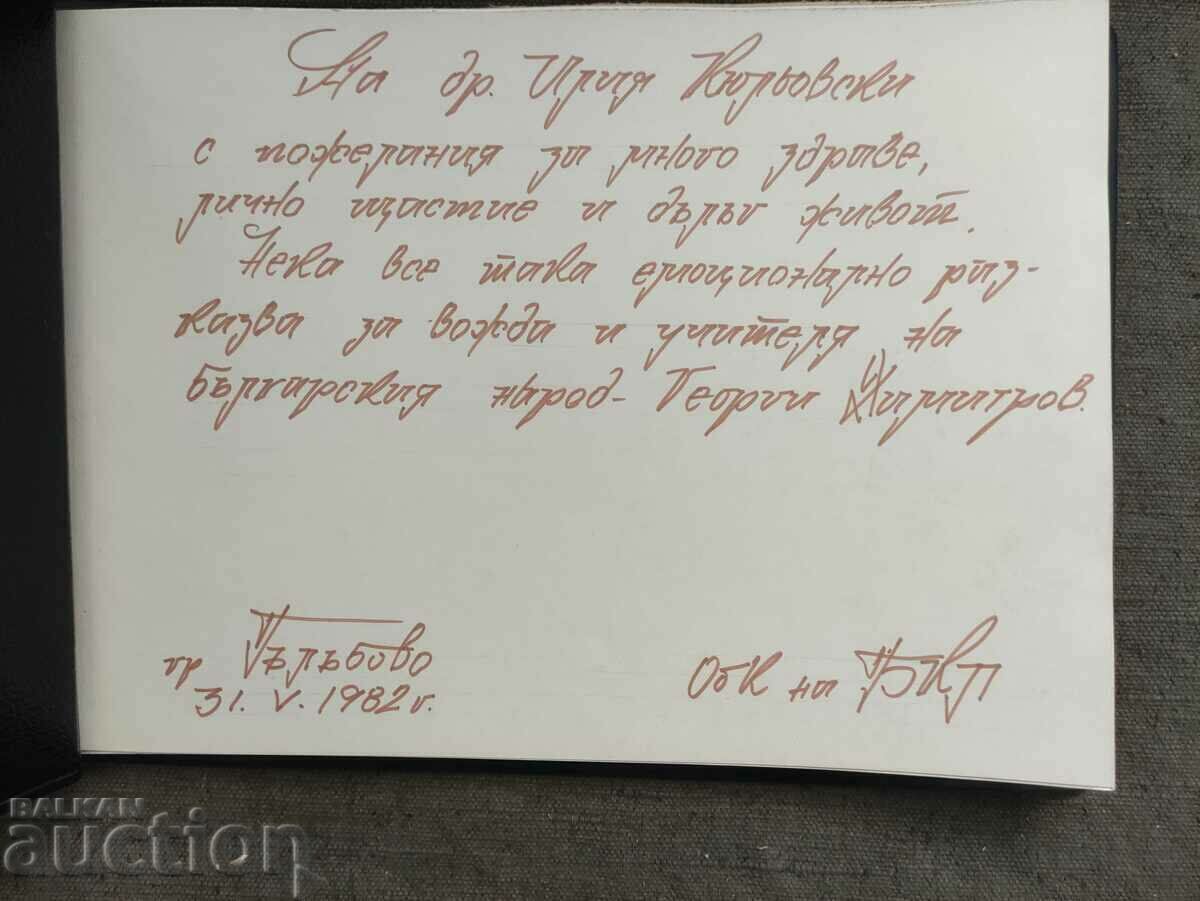 На др. Илия Кюльовски
с пожелания за много здраве,
лично щастие и дълъг живот.
Нека все така емоционално раз-
казва за вожда и учителя на
българския народ - Георги Димитров.
гр Гълъбово
31. V. 1982 г.
ОбК на БКП
BALKAN
auction